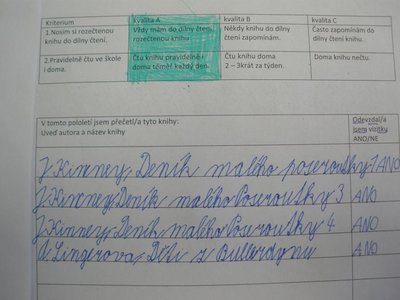 Kriterium kvalita A kvalita B kvalita C
1.Nosím si rozečtenou Vždy mám do dílny čtení Někdy knihu do dílny Často zapomínám do
knihu do dílny čtení. rozečtenou knihu. čtení zapomínám. dílny čtení knihu.
2.Pravidelně čtu ve škole Čtu knihu pravidelně i Čtu knihu doma Doma knihu nečtu.
i doma. doma téměř každý den. 2 – 3krát za týden.
V tomto pololetí jsem přečetl/a tyto knihy: Odevzdal/a
Uveď autora a název knihy jsem vizitky
ANO/NE
J. Kinney, Deník malého poseroutky 1 ANO
J. Kinney, Deník malého Poseroutky 3 ANO
J. Kinney, Deník malého Poseroutky 4 ANO
A. Lingerova, Děti z Bullerdynu ANO